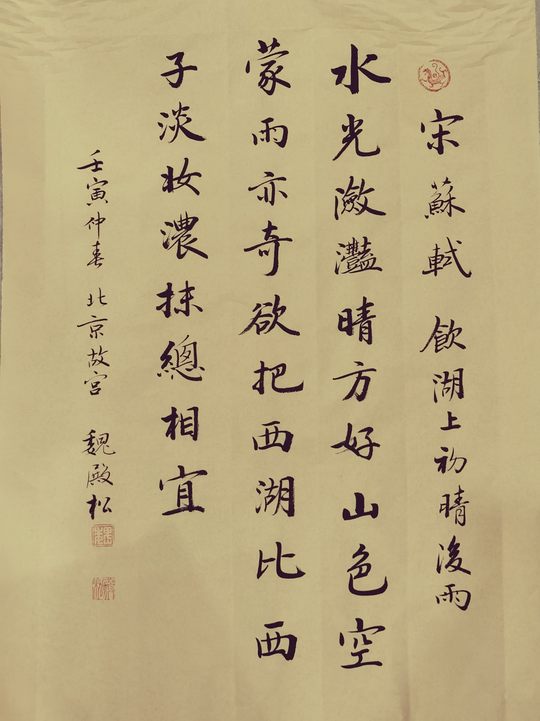 宋蘇軾 飲湖上初晴後雨
水光瀲灩晴方好山色空
蒙雨亦奇欲把西湖比西
子淡妆濃抹總相宜
壬寅仲春 北京故宫 魏殿松